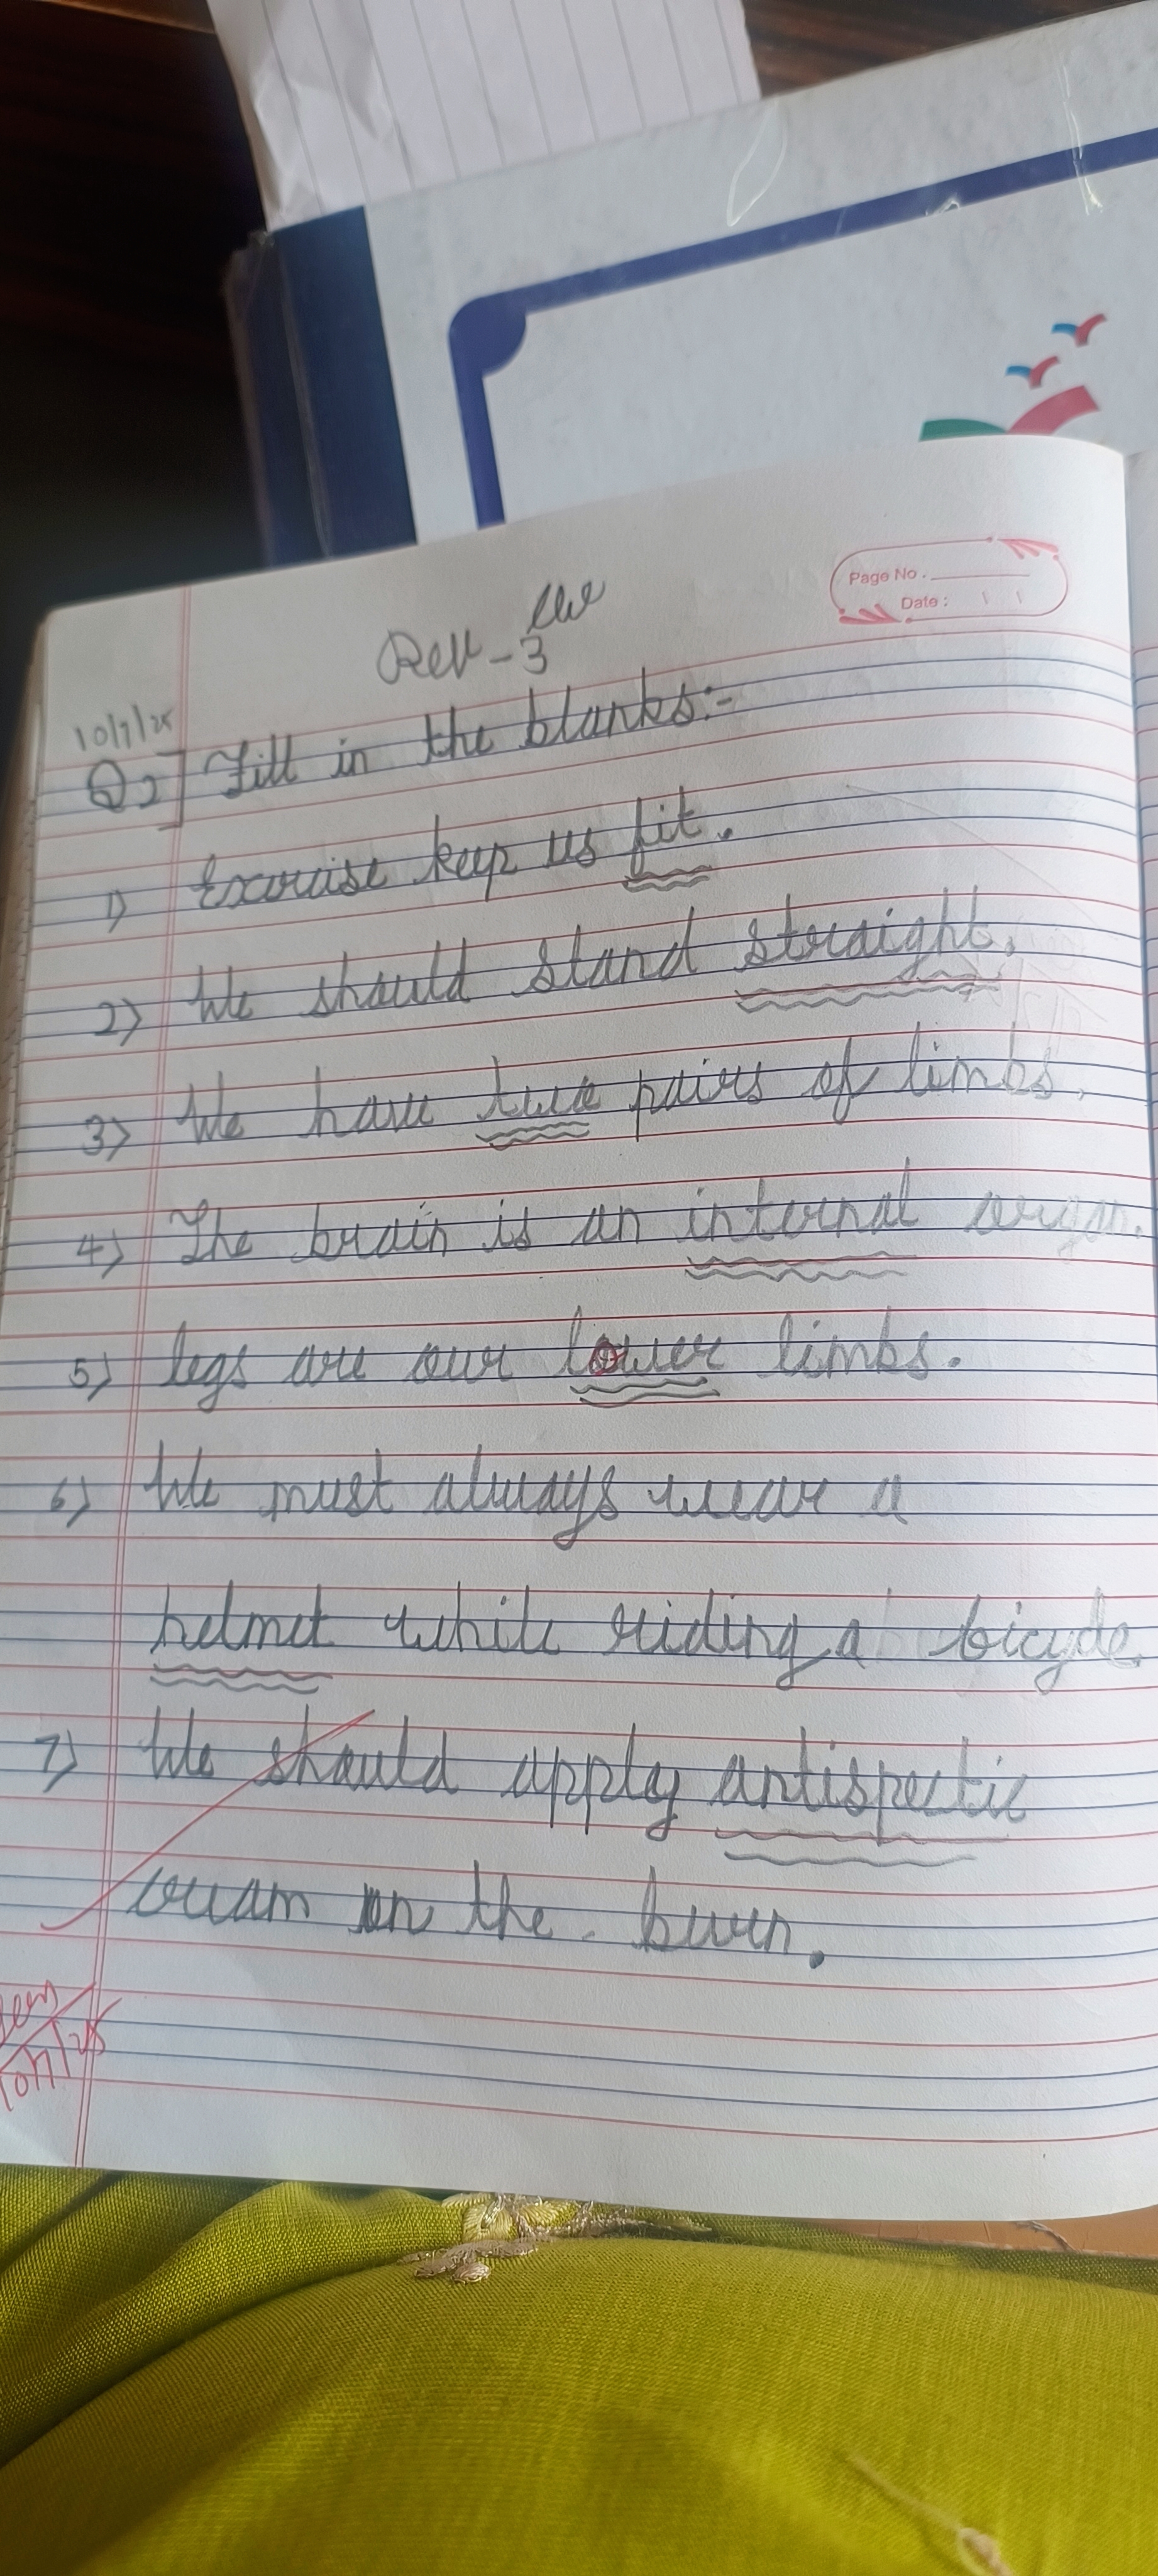 Page No.
Date :
CW
Rev - 3
10/7/25
Q2] Fill in the blanks:-
1) Exercise keep us fit.
2) We should stand straight.
3) We have two pairs of limbs.
4) The brain is an internal organ.
5) legs are our lower limbs.
6) We must always wear a
helmet while riding a bicycle.
7) We should apply antispectic
cream on the burn.
10/7/25